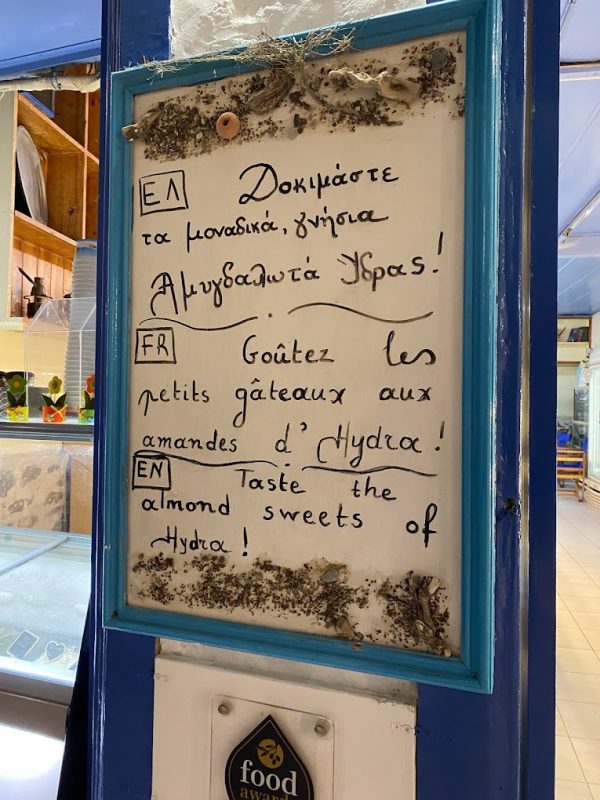 ΕΛ Δοκιμάστε
τα μοναδικά, γνήσια
Αμυγδαλωτά Ύδρας!
FR Goûtez les
petits gâteaux aux
amandes d'Hydra!
EN Taste the
almond sweets of
Hydra!
food